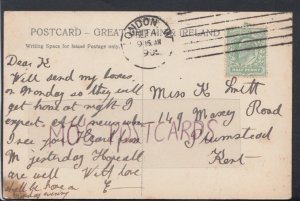 POSTCARD - GREAT BRITAIN & IRELAND
Writing Space for Inland Postage only.
LONDON W
9.15 AM
HALF PENNY
Dear K
Will send my boxes
on Monday so they will
get home at night I
expect. All news when
I see you. Heard from
M yesterday Hope all
are well With love
E
Miss K Smith
149 Maxey Road
Plumstead
Kent